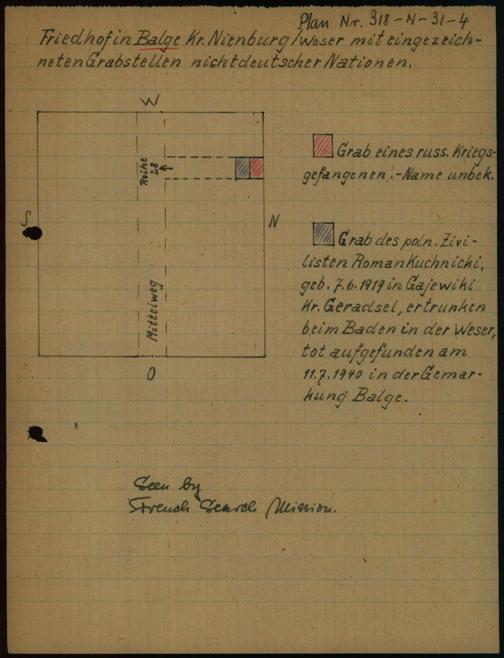 Plan Nr. 318-N-31-4
Friedhof in Balge Kr. Nienburg/Weser mit eingezeich-
neten Grabstellen nichtdeutscher Nationen.
W
Reihe
28
S
N
Mittelweg
O
Grab eines russ. Kriegs-
gefangenen.-Name unbek.
Grab des poln. Zivi-
listen Roman Kuchnicki,
geb. 7.6.1919 in Gajewiki
Kr. Geradsel, ertrunken
beim Baden in der Weser,
tot aufgefunden am
11.7.1940 in der Gemar-
kung Balge.
Seen by
French Search Mission.